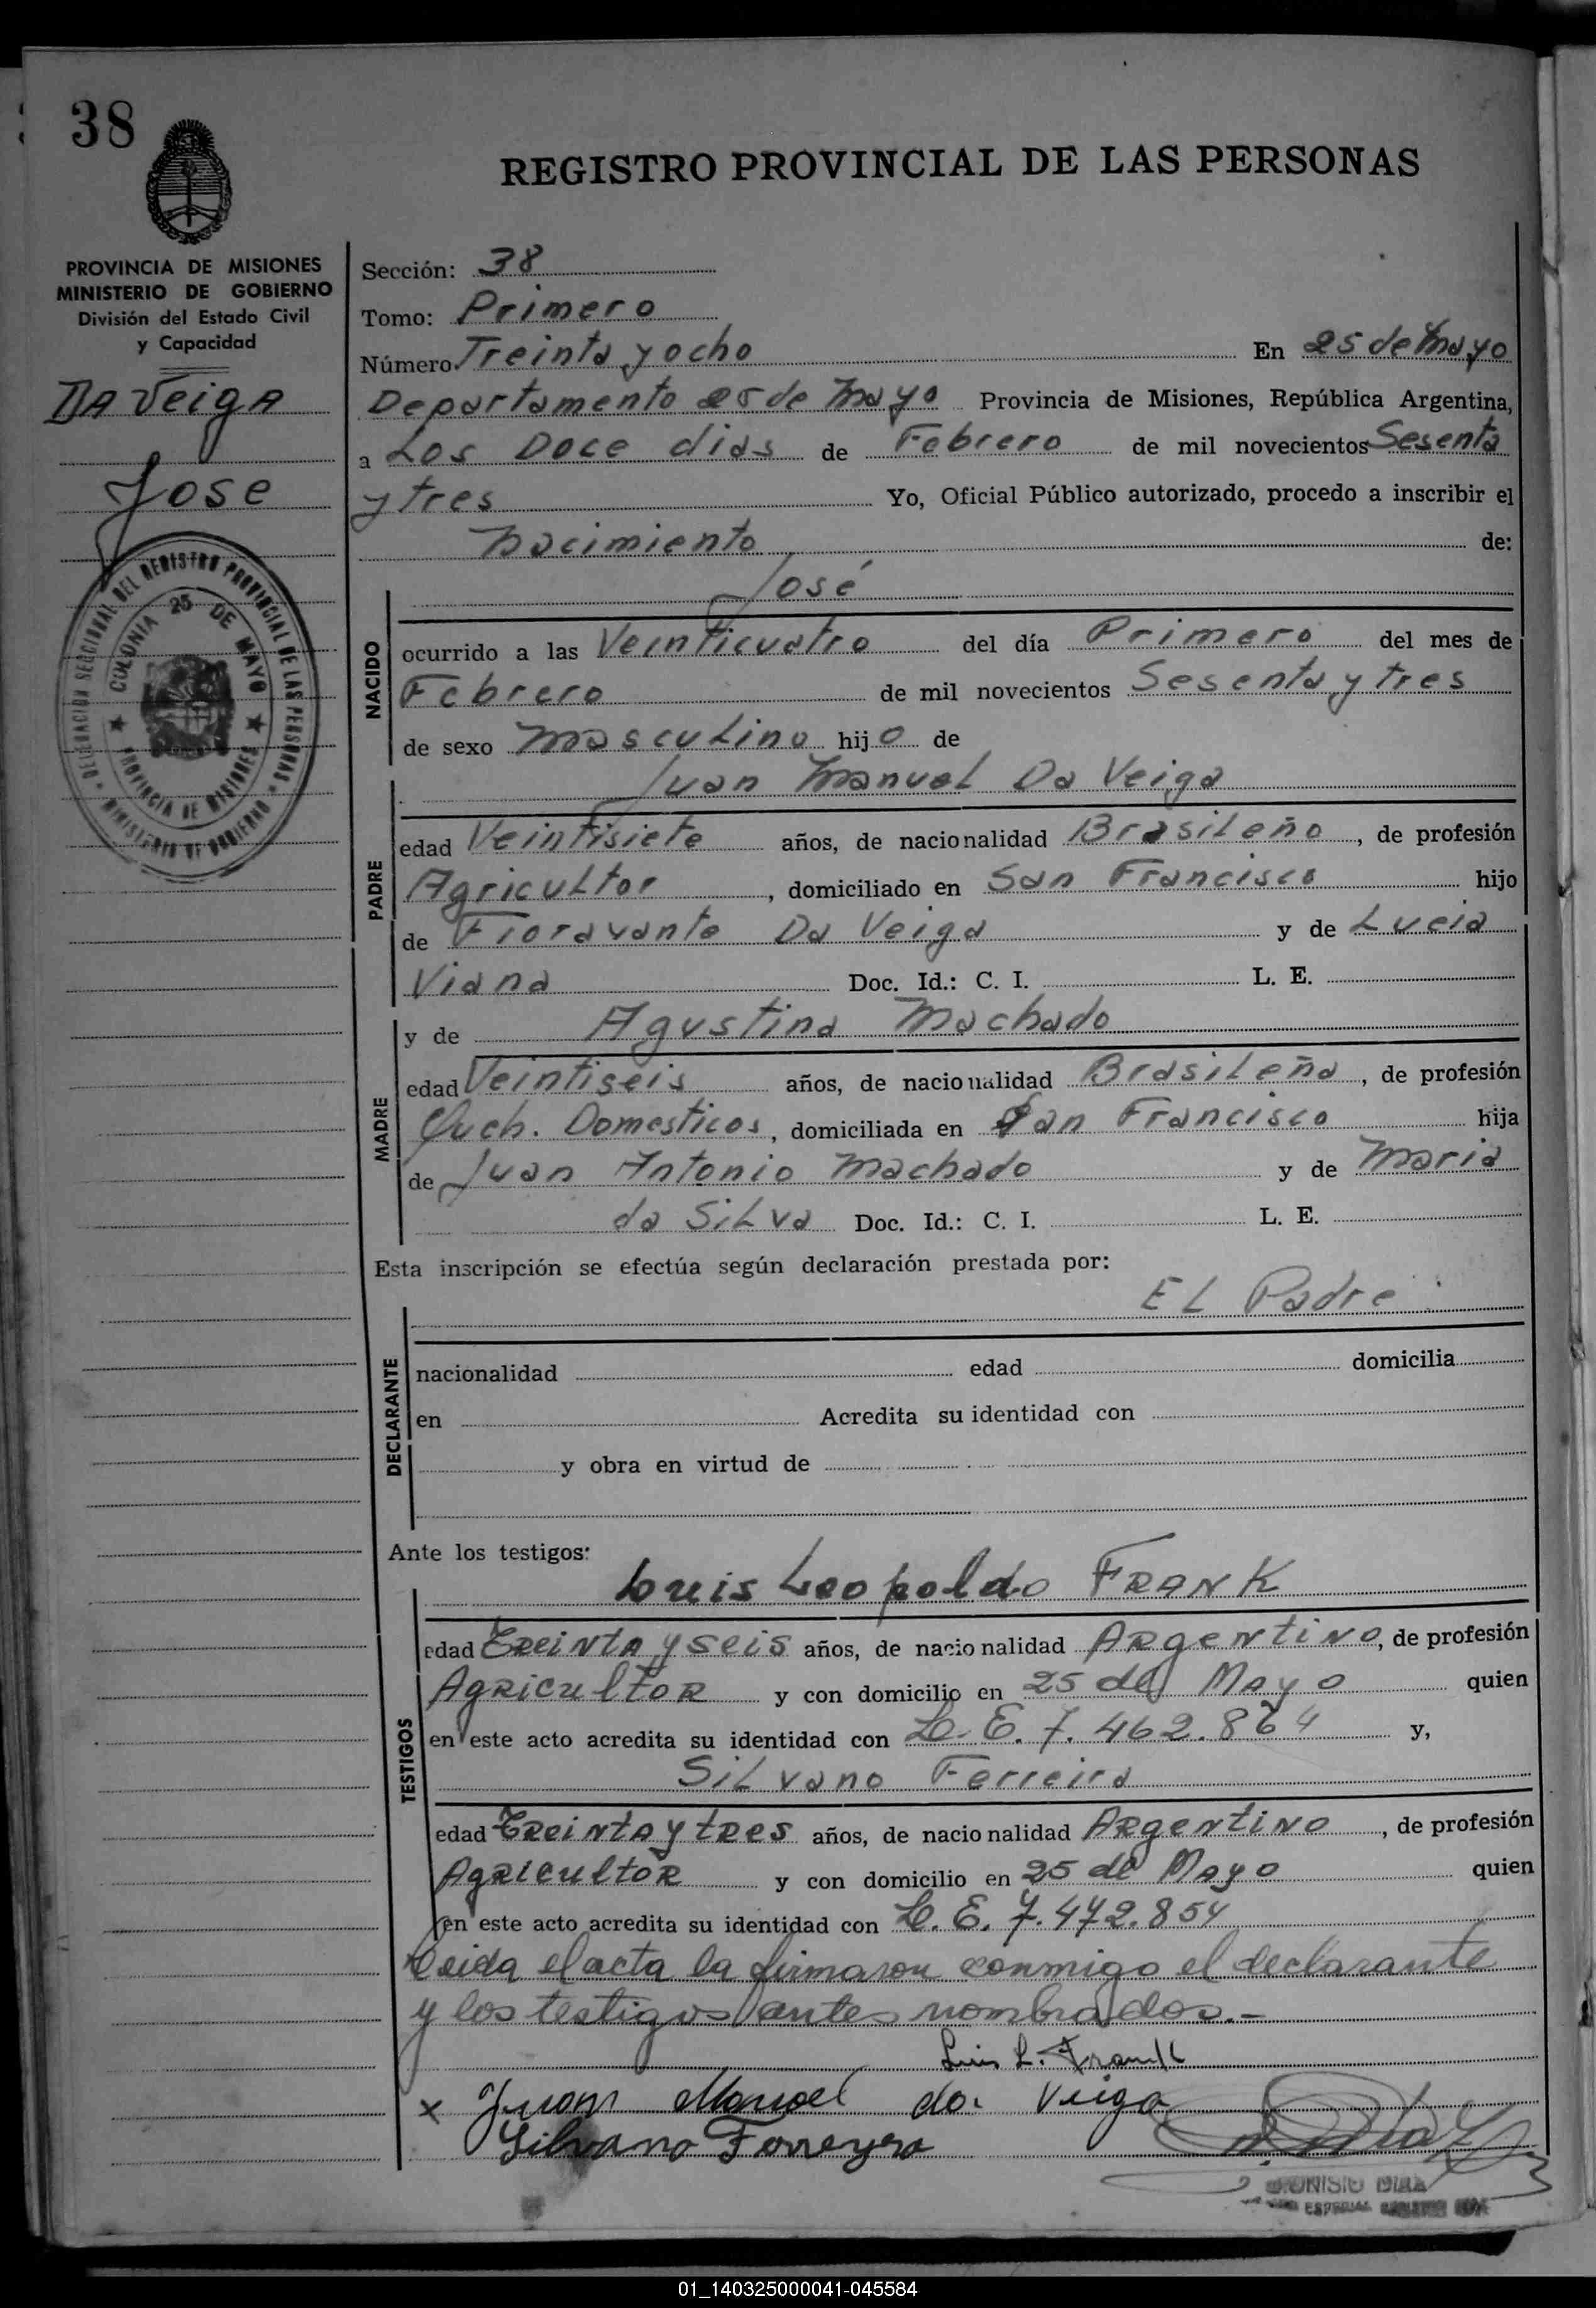 38
REGISTRO PROVINCIAL DE LAS PERSONAS
PROVINCIA DE MISIONES
MINISTERIO DE GOBIERNO
División del Estado Civil
y Capacidad
Da Veiga
Jose
DELEGACIÓN SECCIONAL DEL REGISTRO PROVINCIAL DE LAS PERSONAS
MINISTERIO DE GOBIERNO
COLONIA 25 DE MAYO
PROVINCIA DE MISIONES
Sección: 38
Tomo: Primero
Número Treinta y ocho En 25 de Mayo
Departamento 25 de Mayo Provincia de Misiones, República Argentina,
a Los Doce dias de Febrero de mil novecientos Sesenta
y tres Yo, Oficial Público autorizado, procedo a inscribir el
Nacimiento de:
José
NACIDO
ocurrido a las Veinticuatro del día Primero del mes de
Febrero de mil novecientos Sesenta y tres
de sexo Masculino hijo de
Juan Manuel Da Veiga
PADRE
edad Veintisiete años, de nacionalidad Brasileño, de profesión
Agricultor, domiciliado en San Francisco hijo
de Fioravante Da Veiga y de Lucia
Viana Doc. Id.: C. I. L. E.
y de Agustina Machado
MADRE
edad Veintiseis años, de nacionalidad Brasileña, de profesión
Quch. Domesticos, domiciliada en San Francisco hija
de Juan Antonio Machado y de Maria
da Silva Doc. Id.: C. I. L. E.
Esta inscripción se efectúa según declaración prestada por:
El Padre
DECLARANTE
nacionalidad edad domicilia
en Acredita su identidad con
y obra en virtud de
Ante los testigos:
Luis Leopoldo FRANK
TESTIGOS
edad Treinta y seis años, de nacionalidad Argentino, de profesión
Agricultor y con domicilio en 25 de Mayo quien
en este acto acredita su identidad con L. E. 7.462.864 y,
Silvano Ferreira
edad Treinta y tres años, de nacionalidad Argentino, de profesión
Agricultor y con domicilio en 25 de Mayo quien
en este acto acredita su identidad con L. E. 7.472.854
Leida el acta la firmaron conmigo el declarante
y los testigos antes nombrados.-
Luis L. Frank
x Juan Manoel da Veiga
Silvano Ferreyra
DIONISIO DIAZ
ESPECIAL
01_140325000041-045584